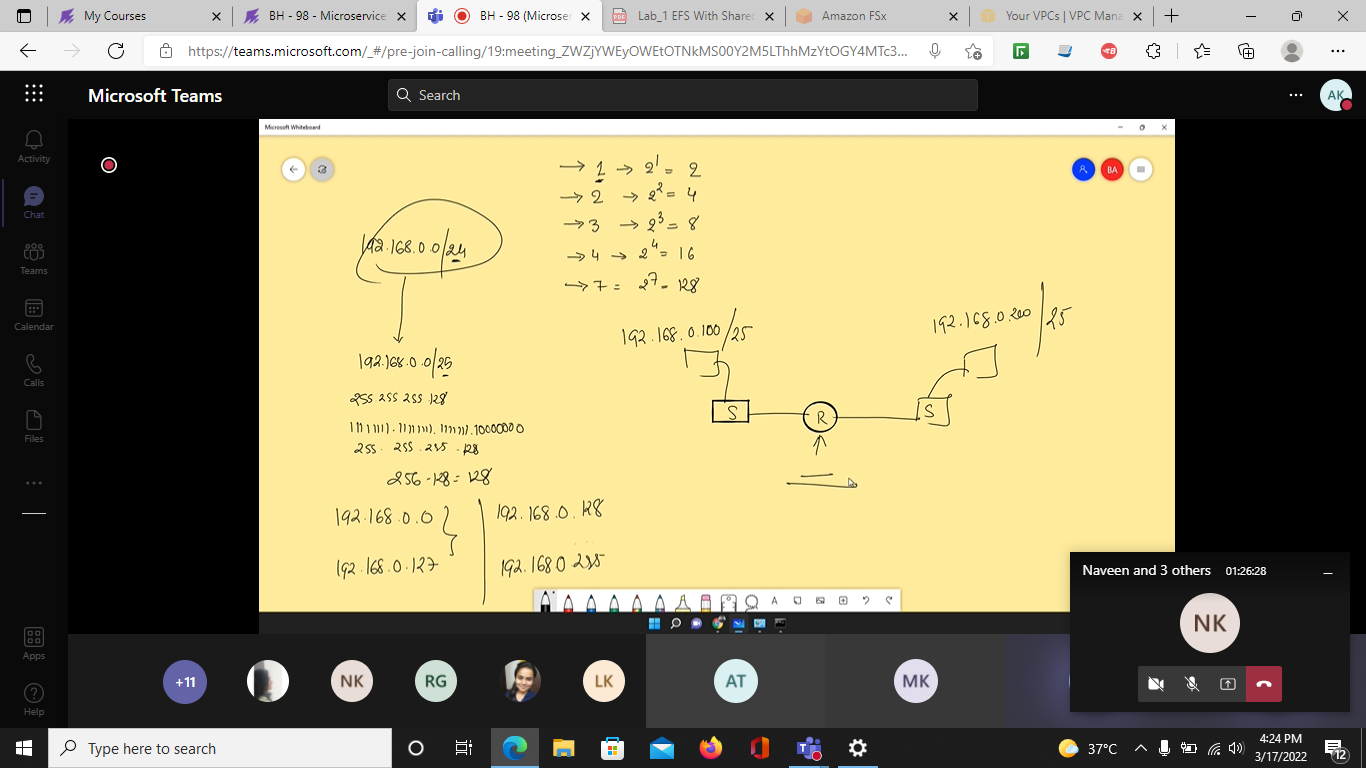 My Courses
BH - 98 - Microservice
BH - 98 (Microser
Lab_1 EFS With Share
Amazon FSx
Your VPCs | VPC Mana
https://teams.microsoft.com/_#/pre-join-calling/19:meeting_ZWZjYWEyOWEtOTNkMS00Y2M5LThhMzYtOGY4MTc3...
Microsoft Teams
Search
AK
Activity
Chat
Teams
Calendar
Calls
Files
Apps
Help
Microsoft Whiteboard
BA
→ 1 → 2^1 = 2
→ 2 → 2^2 = 4
→ 3 → 2^3 = 8
→ 4 → 2^4 = 16
→ 7 = 2^7 = 128
192.168.0.0/24
192.168.0.0/25
255 255 255 128
11111111.11111111.11111111.10000000
255. 255. 255. 128
256-128 = 128
192.168.0.0
192.168.0.127
192.168.0.128
192.168 0 255
192.168.0.100/25
192.168.0.200/25
S
R
S
A
Naveen and 3 others
01:26:28
NK
+11
NK
RG
LK
AT
MK
Type here to search
37°C
4:24 PM
3/17/2022
12